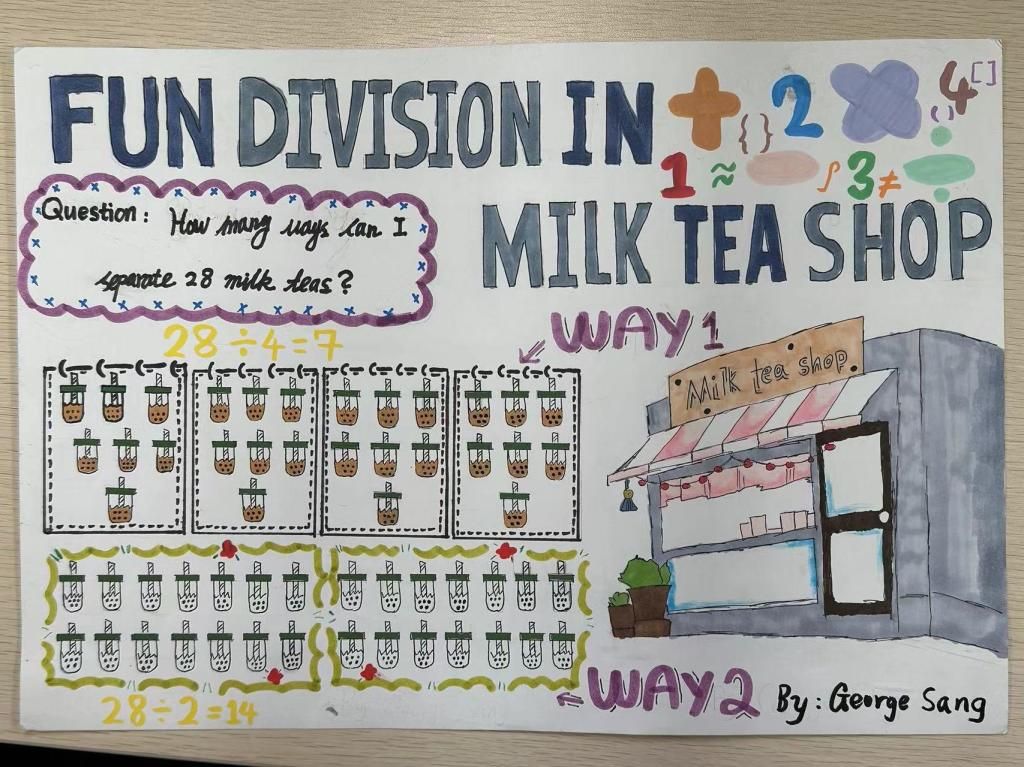 FUN DIVISION IN
MILK TEA SHOP
{} 2 () 4 []
1 ≈ ∫ 3 ≠ ÷
Question: How many ways can I
separate 28 milk teas?
28÷4=7
WAY 1
Milk tea shop
28÷2=14
WAY 2
By: George Sang